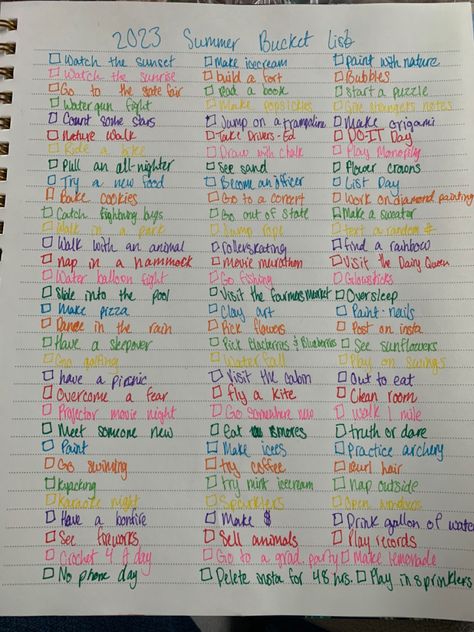 2023 Summer Bucket List
Watch the sunset Make icecream Paint with nature
Watch the sunrise build a fort Bubbles
Go to the sate fair Read a book Start a puzzle
Water gun fight Make popsickles Give strangers notes
Count some stars Jump on a trampoline Make origami
Neture walk Take Drivers-Ed DO-IT Day
Ride a bike Draw with chalk Play Monopoly
Pull an all-nighter See sand Flower crowns
Try a new food Become an officer List Day
Bake cookies Go to a concert Work on diamond painting
Catch lightning bugs Go out of state Make a sweater
Walk in a park Jump rope text a random #
Walk with an animal Rollerskating find a rainbow
Nap in a hammock Movie marathon Visit the Dairy Queen
Water balloon fight Go fishing Glowsticks
Slide into the pool Visit the Farmers Market Oversleep
Make pizza Clay art Paint-nails
Dance in the rain Pick flowers Post on insta
Have a sleepover Pick Blackberries & Blueberries See sunflowers
Go golfing Waterfall Play on swings
have a picnic Visit the cabin Out to eat
Overcome a fear fly a kite Clean room
Projector movie night Go somewhere new walk 1 mile
Meet someone new Eat smores truth or dare
Paint Make icees Practice archery
Go swiming try coffee curl hair
Kyacking Try mint icecream Nap outside
Karaoke night Sparklers Open windows
Have a bonfire Make $ Drink gallon of water
See fireworks Sell animals Play records
Crochet 4 a day Go to a grad. party Make lemonade
No phone day Delete insta for 48 hrs. Play in sprinklers